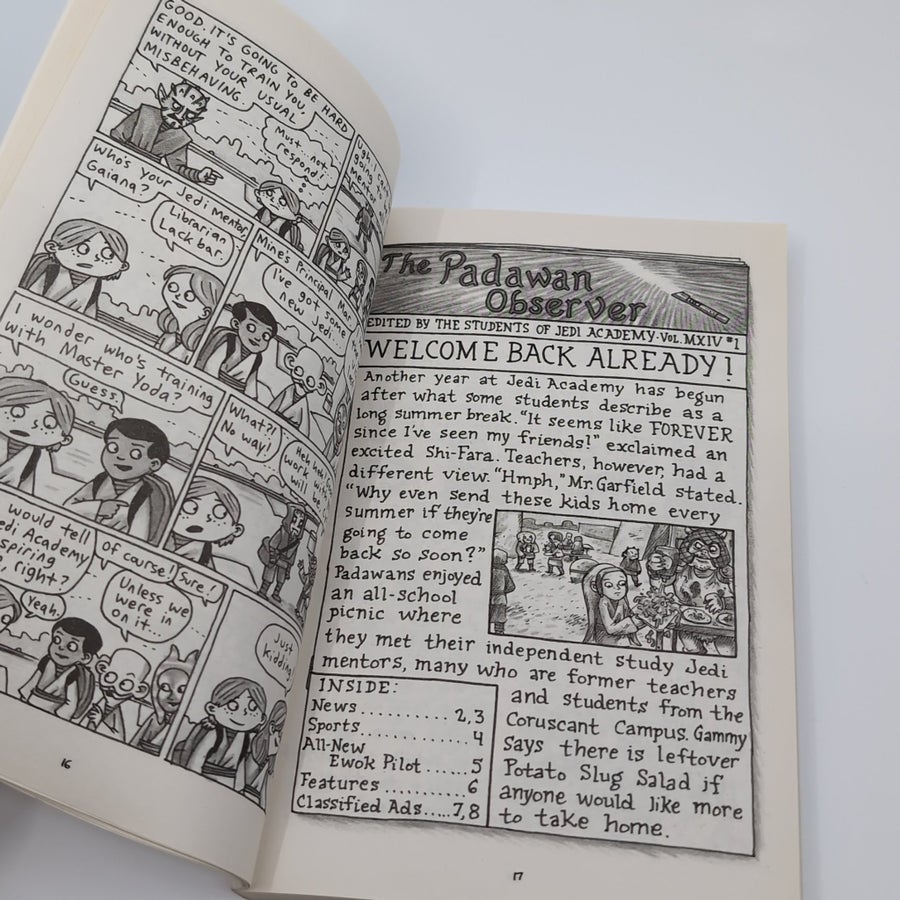 GOOD. IT'S GOING TO BE HARD
ENOUGH TO TRAIN YOU,
WITHOUT YOUR USUAL
MISBEHAVING
Must...not
respond!
Ugh.
going to
Who's your Jedi mentor,
Gaiana?
Librarian
Lackbar
Mine's Principal Mar
I've got some
new Jedi
I wonder who's training
with Master Yoda?
Guess.
What?!
No way!
Heh heh!
work with
will be
would tell
Jedi Academy
right?
Yeah.
of course!
Sure!
Unless we
were in
on it...
Just
kidding
16
The Padawan
Observer
EDITED BY THE STUDENTS OF JEDI ACADEMY • VOL. MXIV #1
WELCOME BACK ALREADY!
Another year at Jedi Academy has begun
after what some students describe as a
long summer break. "It seems like FOREVER
since I've seen my friends!" exclaimed an
excited Shi-Fara. Teachers, however, had a
different view. "Hmph," Mr. Garfield stated.
"Why even send these kids home every
summer if they're
going to come
back so soon?"
Padawans enjoyed
an all-school
picnic where
they met their independent study Jedi
mentors, many who are former teachers
and students from the
Coruscant Campus. Gammy
says there is leftover
Potato Slug Salad if
anyone would like more
to take home.
INSIDE:
News.......... 2,3
Sports............. 4
All-New
Ewok Pilot......5
Features.......... 6
Classified Ads.....7,8
17